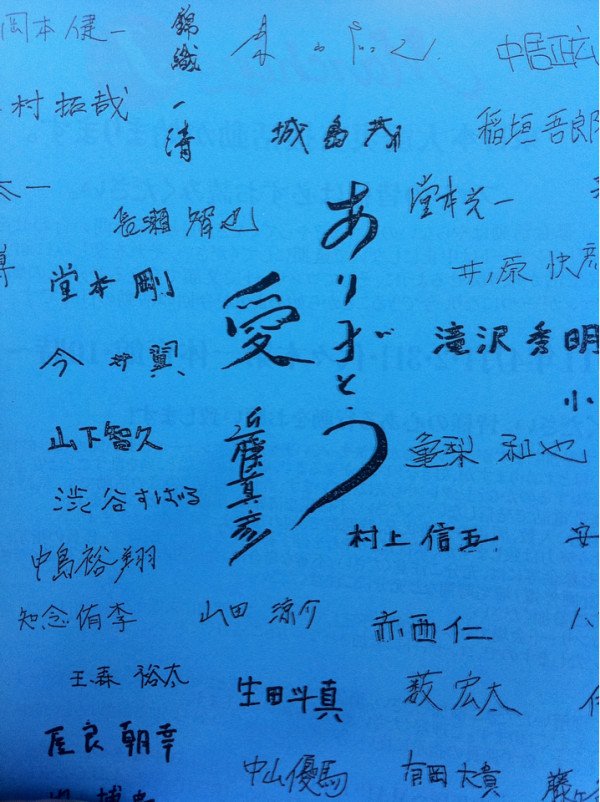 岡本健一
錦織
一清
中居正広
村拓哉
城島茂
稲垣吾郎
太一
長瀬智也
堂本光一
井ノ原快彦
堂本剛
ありがとう
愛
近藤真彦
滝沢秀明
今井翼
小
山下智久
亀梨和也
渋谷すばる
村上信五
安
中島裕翔
知念侑李
山田涼介
赤西仁
八
玉森裕太
生田斗真
薮宏太
屋良朝幸
中山優馬
有岡大貴
藤